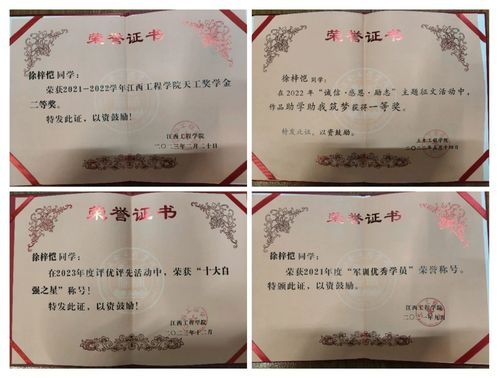 荣誉证书
徐梓恺同学：
荣获2021-2022学年江西工程学院天工奖学金
二等奖。
特发此证，以资鼓励。
江西工程学院
二〇二三年二月二十日
荣誉证书
徐梓恺同学：
在2022年“诚信·感恩·励志”主题征文活动中，
作品助学助我筑梦获得一等奖。
特发此证，以资鼓励。
土木工程学院
二〇二二年五月十四日
荣誉证书
徐梓恺同学：
在2023年度评优评先活动中，荣获“十大自
强之星”称号！
特发此证，以资鼓励！
江西工程学院
二〇二三年十二月
荣誉证书
徐梓恺同学：
荣获2021年度“军训优秀学员”荣誉称号。
特颁此证，以资鼓励。
江西工程学院